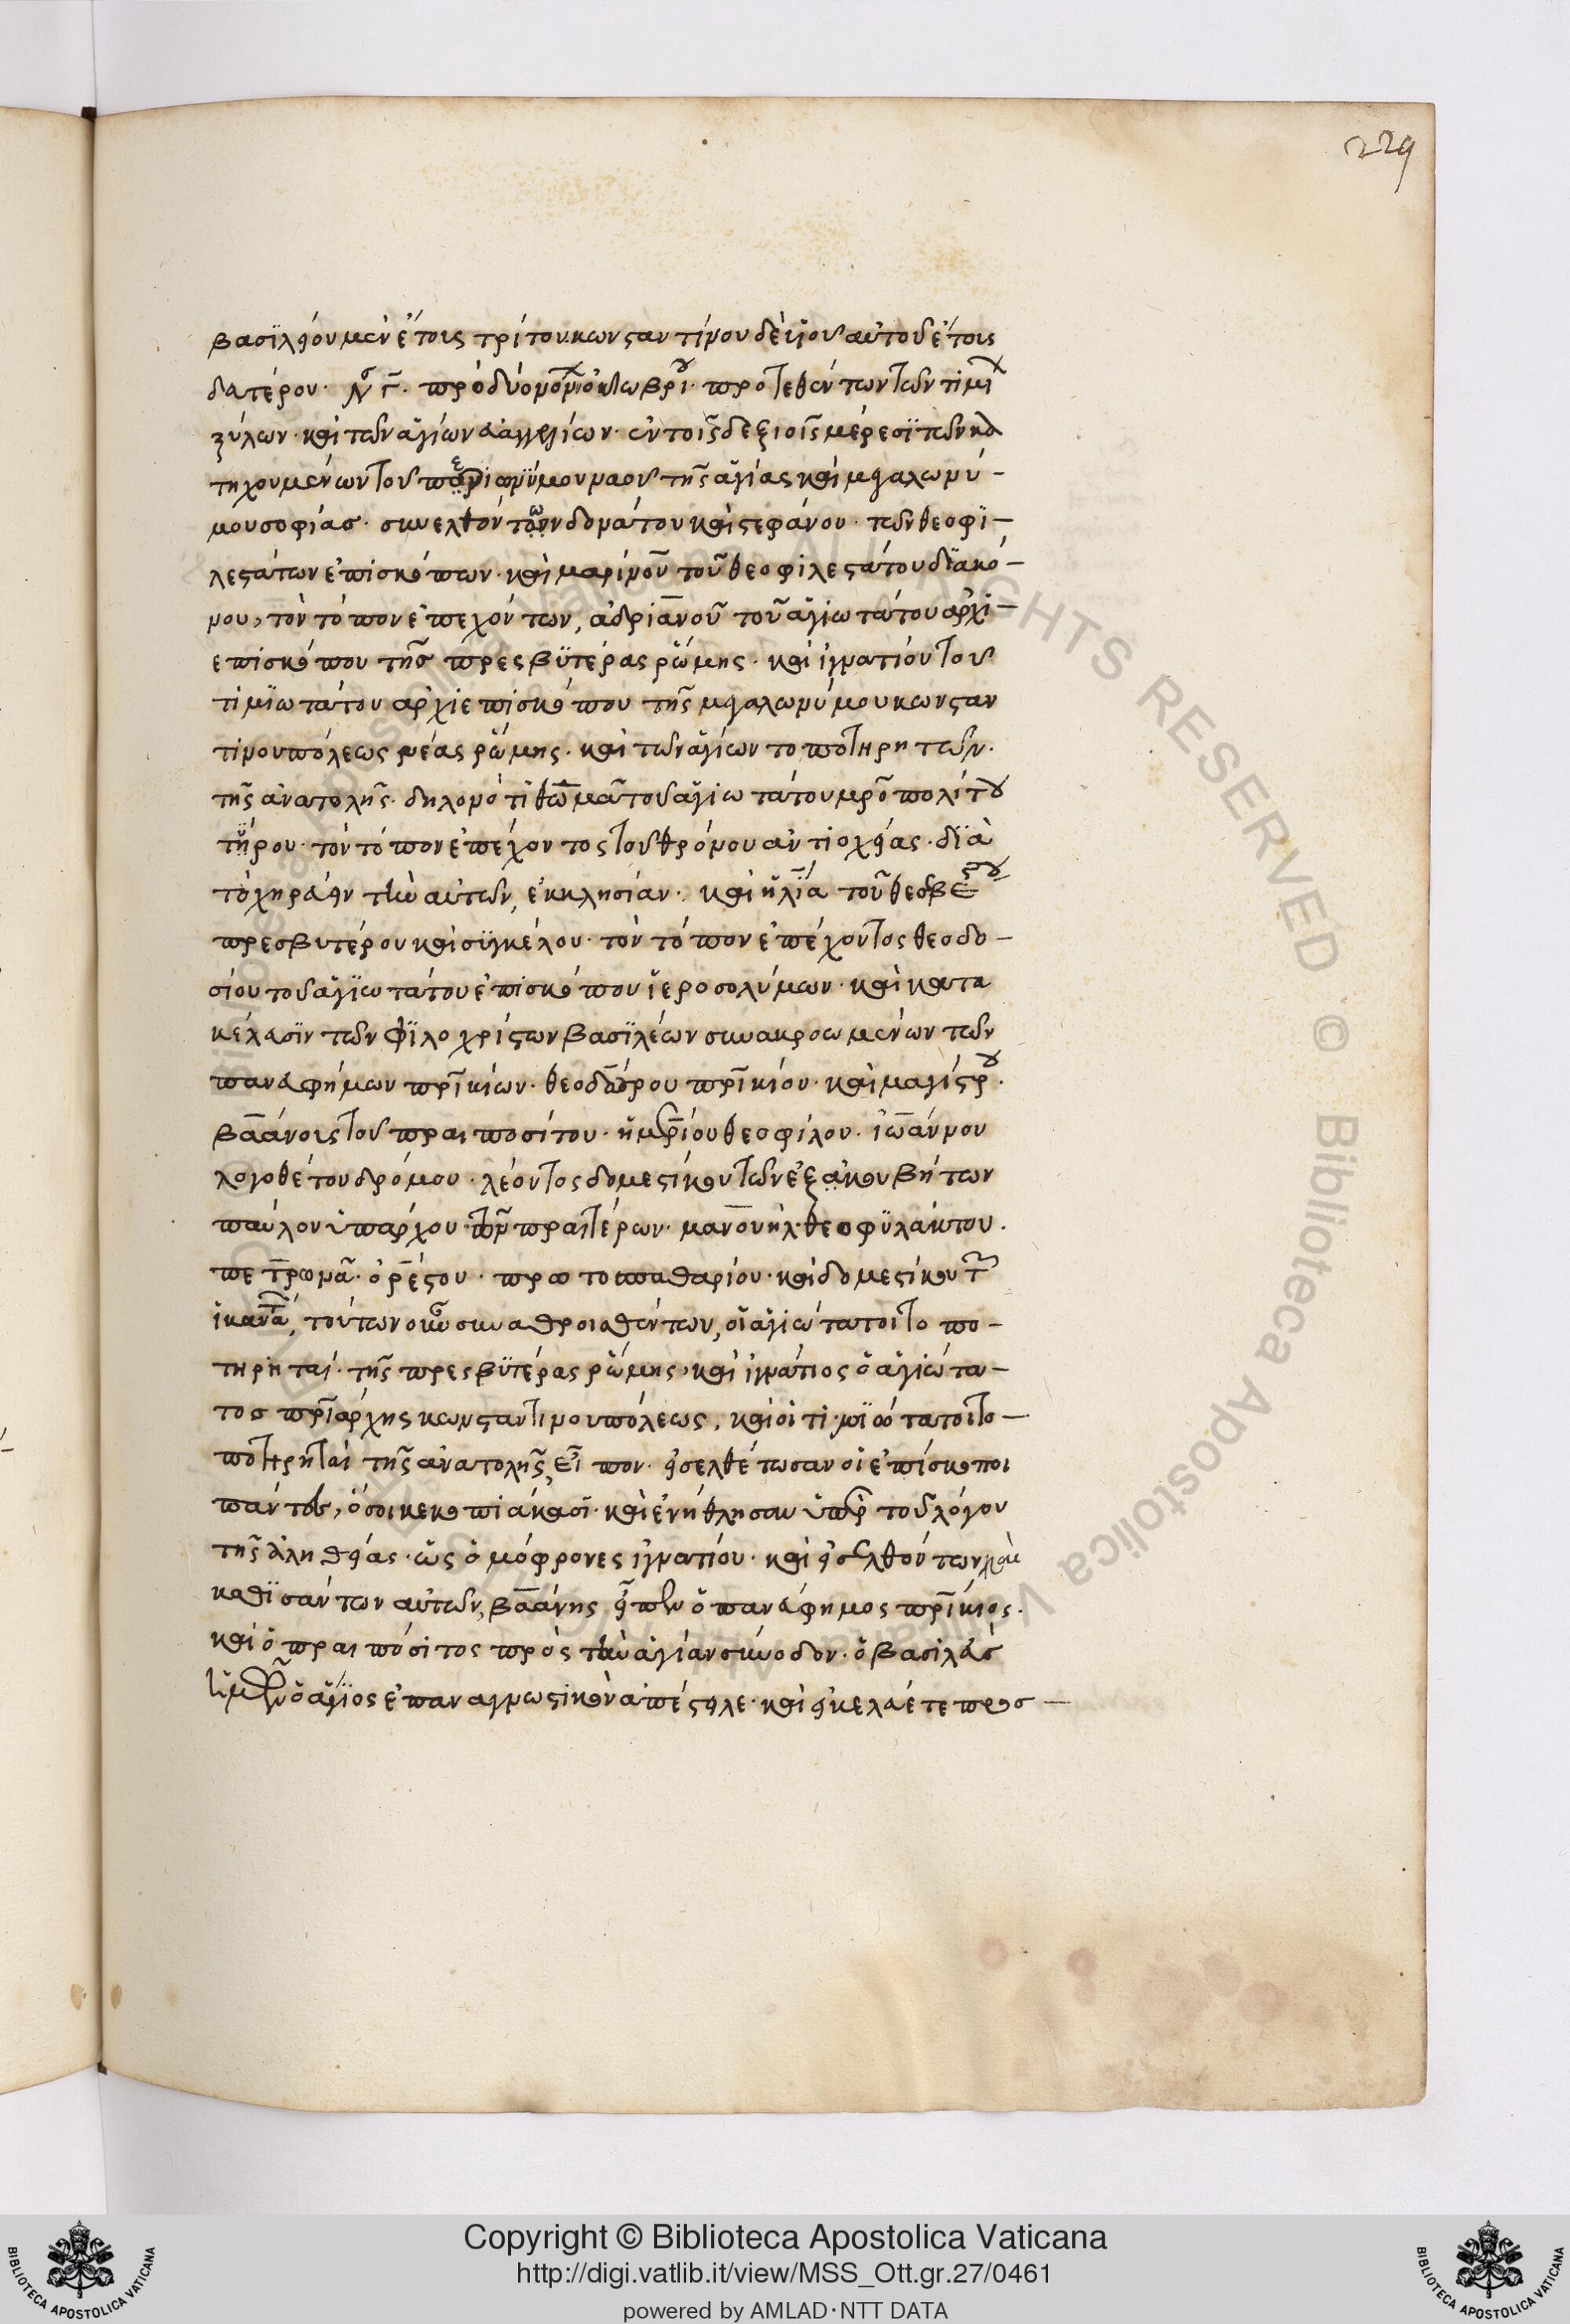 229
βασϊλείου μὲν ἔτους τρίτου. κωνσταντίνου δὲ ὑϊοῦ αὐτοῦ ἔτους
δευτέρου. προτεθέντων τῶν τιμί
ξύλων. καὶ τῶν ἁγίων εὐαγγελίων. ἐν τοῖς δεξιοῖς μέρεσϊ τῶν κα
τηχουμένων τοῦ ναοῦ τῆς ἁγίας καὶ μεγαλωνύ-
μου σοφίας. συνελθόντων δονάτου καὶ στεφάνου. τῶν θεοφϊ-
λεστάτων ἐπισκόπων. καὶ μαρίνου τοῦ θεοφιλεστάτου δϊακό-
νου, τὸν τόπον ἐπεχόντων, ἀδριανοῦ τοῦ ἁγιωτάτου ἀρχι-
επισκόπου τῆς πρεσβϋτέρας ῥώμης. καὶ ἰγνατίου τοῦ
τιμϊωτάτου ἀρχιεπισκόπου τῆς μεγαλωνύμου κωνσταν
τινουπόλεως νέας ῥώμης. καὶ τῶν ἁγίων τοποτηρητῶν.
τῆς ἀνατολῆς. δηλονότι θωμᾶ τοῦ ἁγιωτάτου μρο̅πολίτου
τύρου. τὸν τόπον ἐπέχοντος τοῦ θρόνου ἀντιοχείας. δϊὰ
τὸ χηρεύειν τὴν αὐτῶν, ἐκκλησίαν. καὶ ἠλία τοῦ θεοσβεστου
πρεσβυτέρου καὶ σϋγκέλου. τὸν τόπον ἐπέχοντος θεοδο-
σίου τοῦ ἁγϊωτάτου ἐπισκόπου ἱεροσολύμων. καὶ κατα
κέλευσϊν τῶν φϊλοχρίστων βασϊλέων συνακροωμένων τῶν
πανευφήμων πρι̅κίων. θεοδώρου πρι̅κίου. καὶ μαγίστρου.
βαάνους τοῦ πραιποσίτου. θεοφίλου. ἰωάννου
λογοθέτου δρόμου. λέοντος δομεστίκου τῶν ἐξακουβήτων
παύλου ὑπάρχου τῶν πραιτέρων. μανουήλ. θεοφϋλάκτου.
πετρωνᾶ. ὀρέστου. πρωτοσπαθαρίου. καὶ δομεστίκου τῶν
ἱκανά, τούτων οὖν συναθροισθέντων, οἱ ἁγιώτατοι τοπο-
τηρηταί. τῆς πρεσβϋτέρας ῥώμης, καὶ ἰγνάτιος ὁ ἁγιώτα-
τος πρι̅άρχης κωνσταντινουπόλεως, καὶ οἱ τιμϊώτατοι το-
ποτηρηταὶ τῆς ἀνατολῆς, εἶπον. εἰσελθέτωσαν οἱ ἐπίσκοποι
πάντες, ὅσοι κεκοπιάκασϊ. καὶ ἐνήθλησαν ὑπὲρ τοῦ λόγου
τῆς ἀληθείας. ὡς ὁμόφρονες ἰγνατίου. καὶ εἰσελθόντων καὶ
καθϊσάντων αὐτῶν, βαάνης εἶπεν ὁ πανεύφημος πρι̅κιος.
καὶ ὁ πραιπόσιτος πρὸς τὴν ἁγίαν σύνοδον. ὁ βασιλεὺς
ἡμῶν ὁ ἅγϊος ἐπαναγνωστικὸν ἀπέστειλε. καὶ εἰ κελεύετε προσ-
Copyright © Biblioteca Apostolica Vaticana
http://digi.vatlib.it/view/MSS_Ott.gr.27/0461
powered by AMLAD·NTT DATA